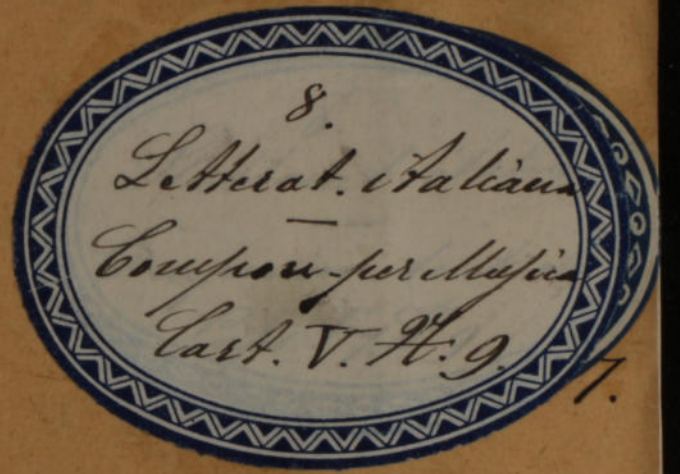 8.
Letterat. italiana
—
Compon. per Musica
Cart. V. N. 9.
7.